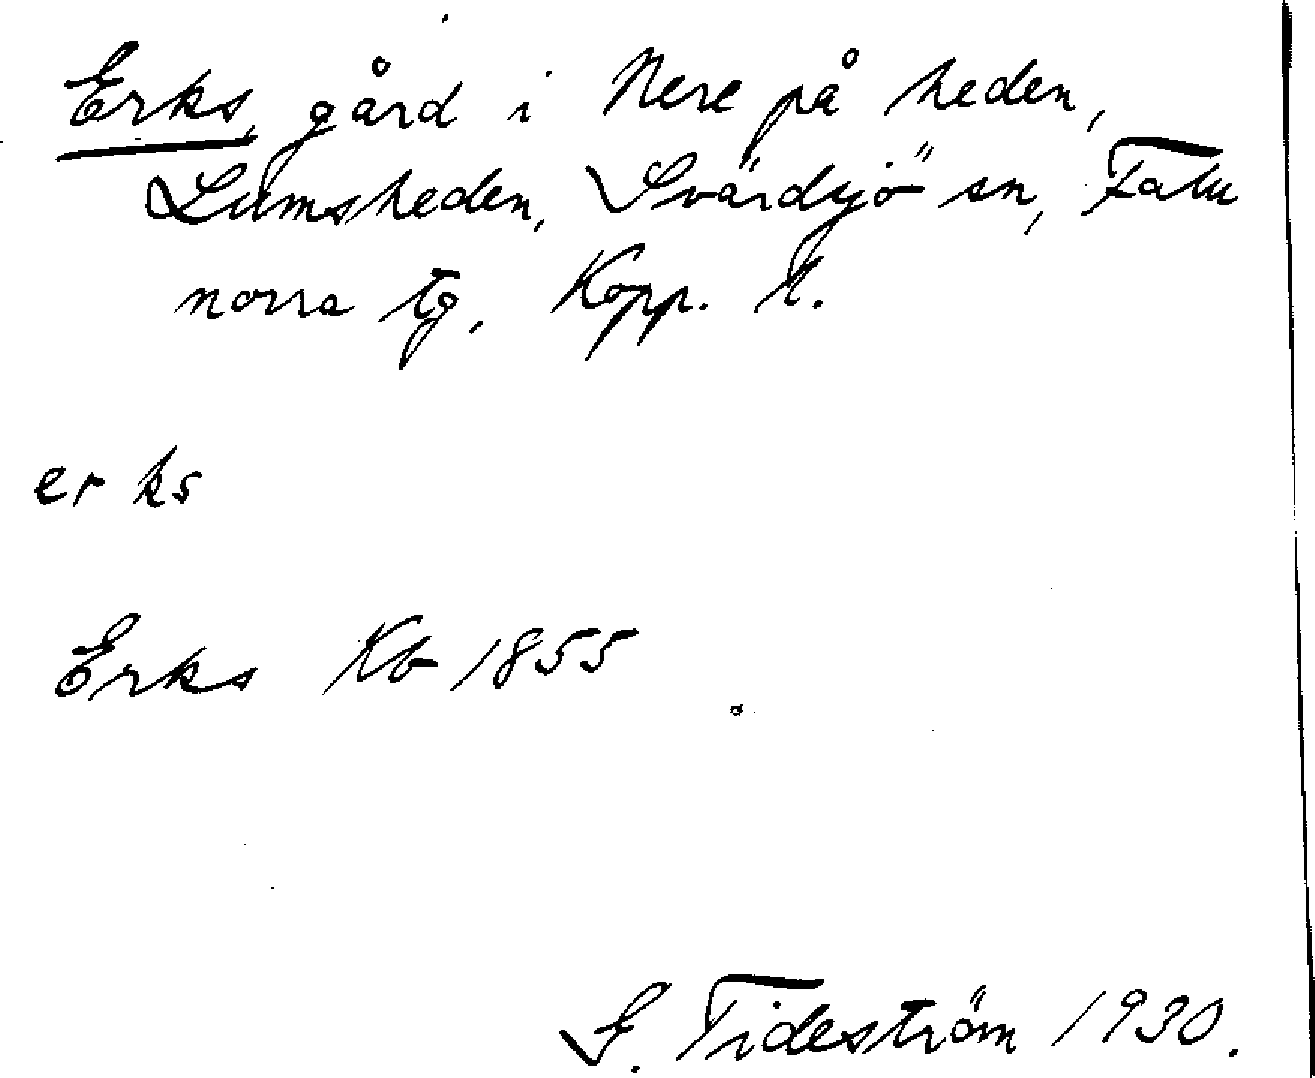 Erks, gård i Nere på heden,
Lumsheden, Svärdsjö sn, Falu
norra tg, Kopp. l.
erks
Erks Kb 1855
G. Tideström 1930.